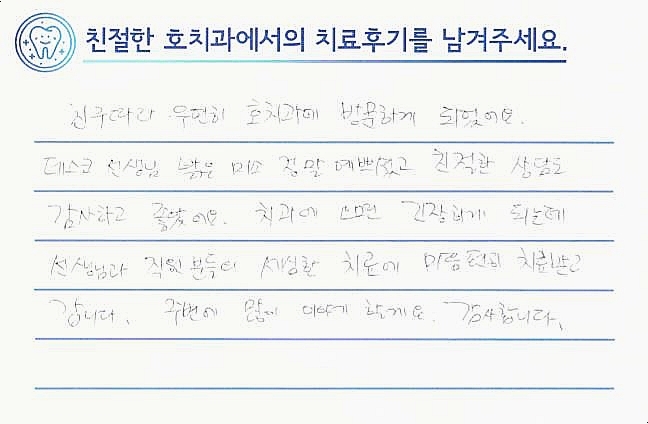 친절한 호치과에서의 치료후기를 남겨주세요.
친구따라 우연히 호치과에 방문하게 되었어요.
데스크 선생님 밝은 미소 정말 예쁘셨고 친절한 상담도
감사하고 좋았어요. 치과에 오면 긴장하게 되는데
선생님과 직원분들의 세심한 치료에 마음편히 치료받고
갑니다. 주변에 많이 이야기 할게요. 감사합니다.